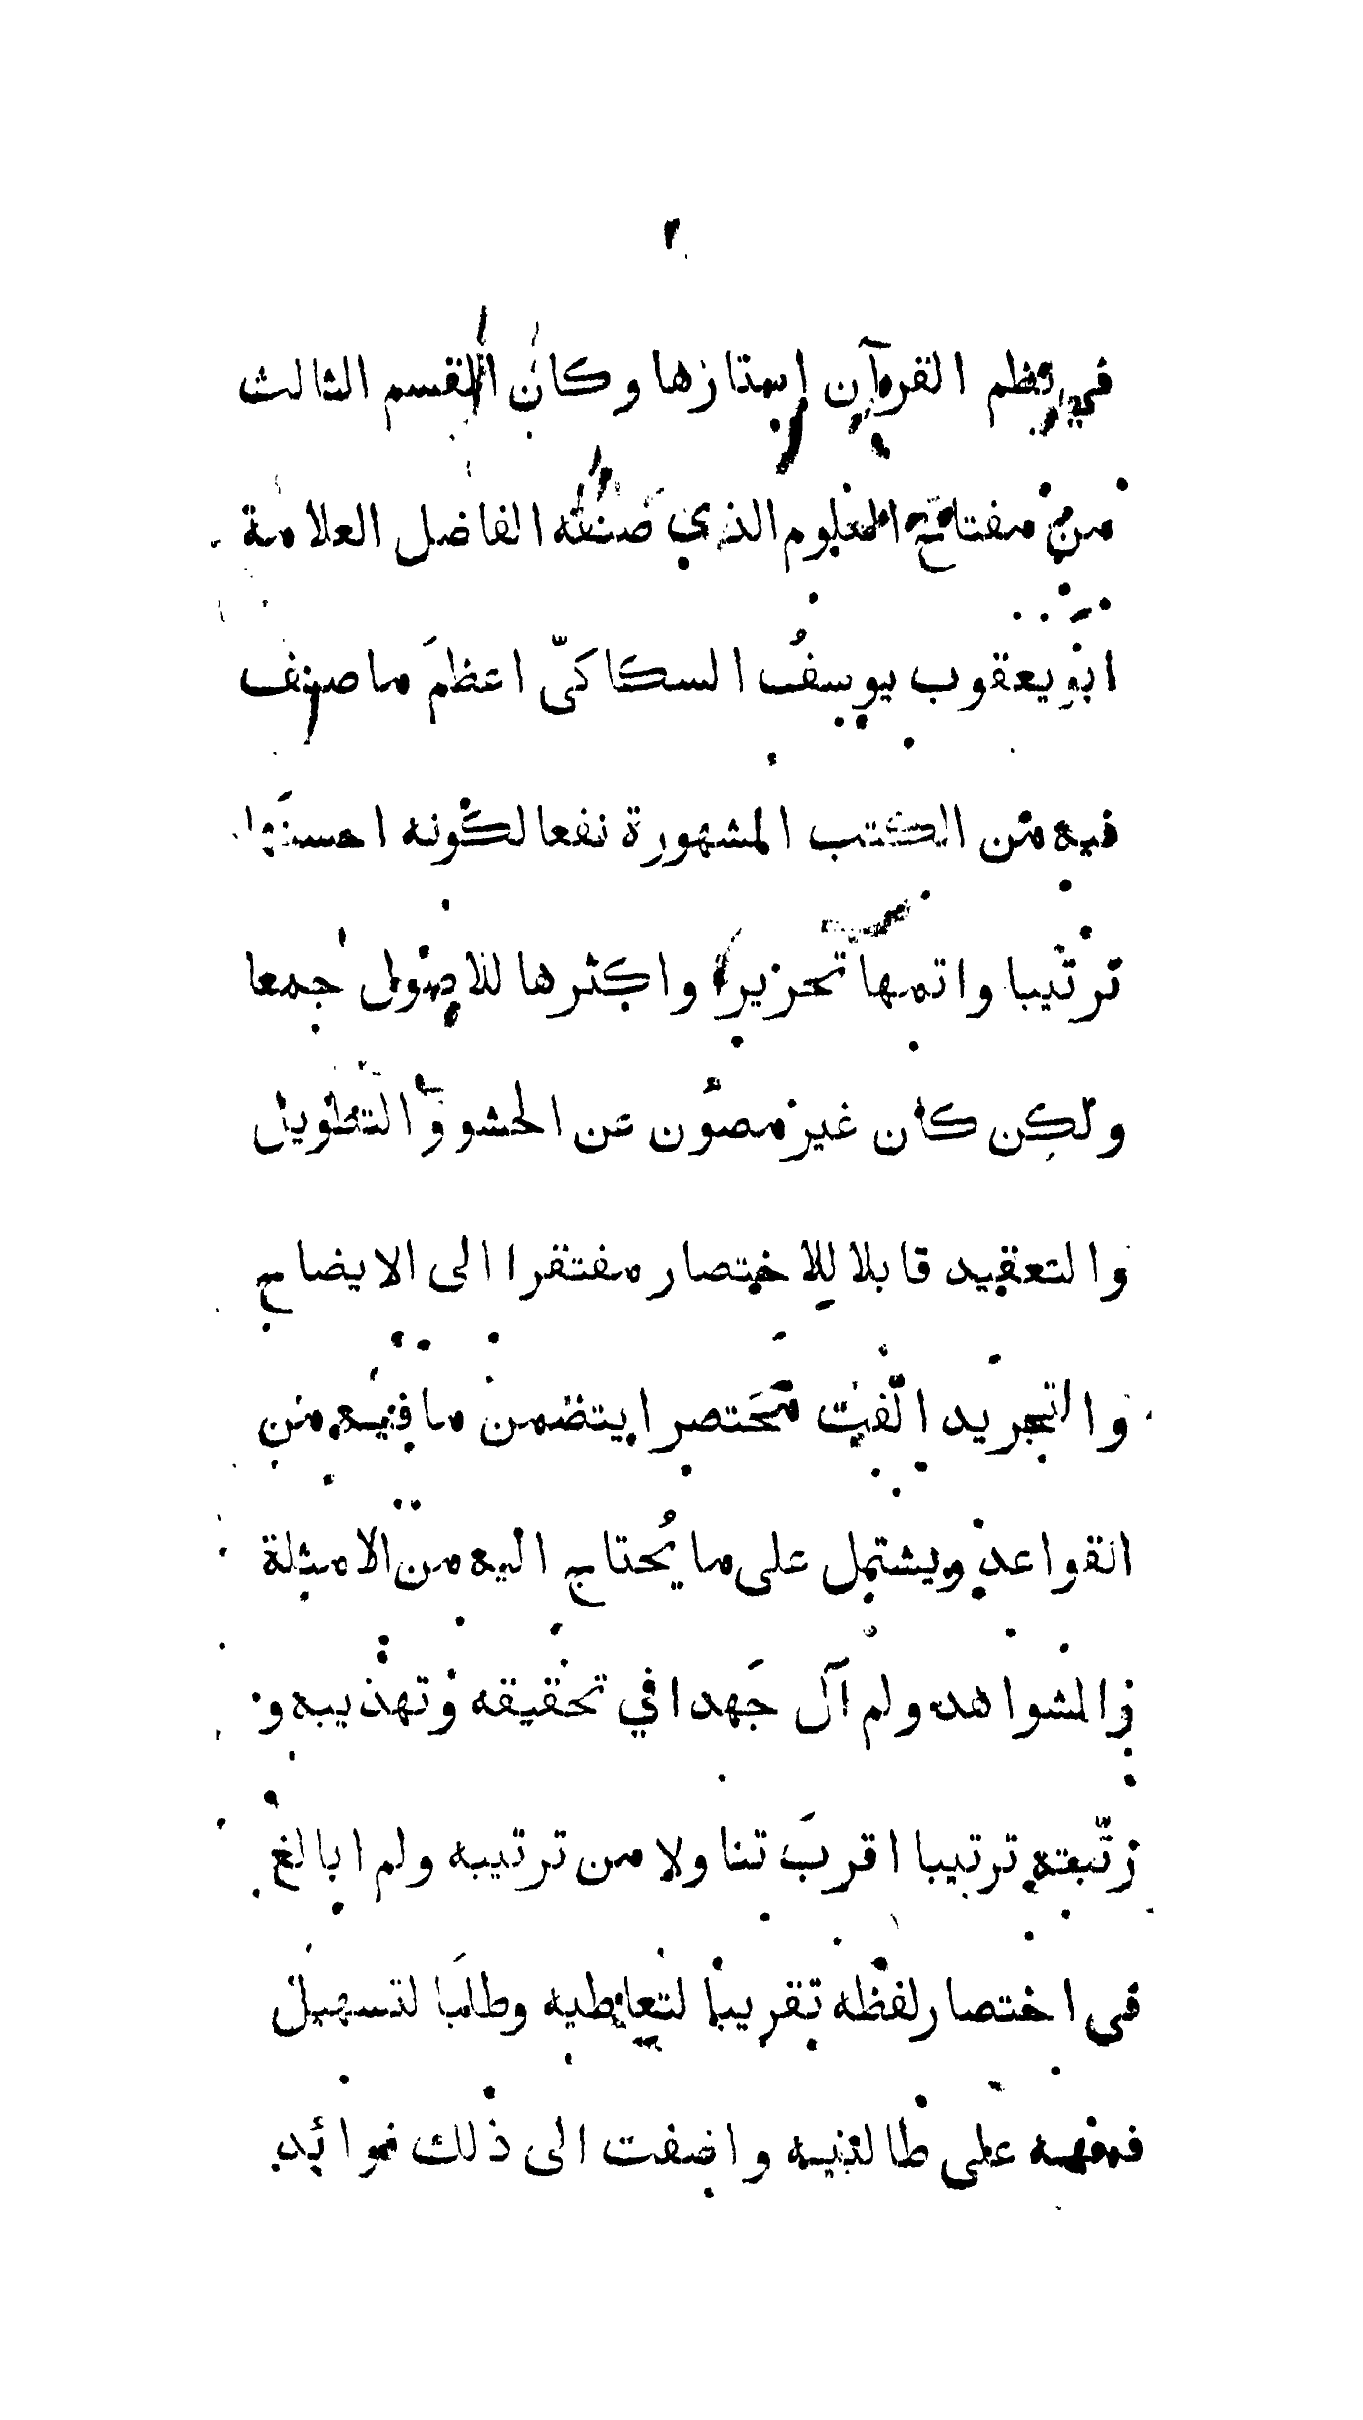 ٢
في نظم القرآن استارها وكان القسم الثالث
من مفتاح العلوم الذي صنفه الفاضل العلامة
ابو يعقوب يوسفُ السكاكيّ اعظمَ ما صنف
فيه من الكتب المشهورة نفعا لكونه احسنَها
ترتيبا واتمها تحريرا واكثرها للاصول جمعا
ولكن كان غير مصون عن الحشو والتطويل
والتعقيد قابلا للاختصار مفتقرا الى الايضاح
والتجريد الّفت مختصرا يتضمن ما فيه من
القواعد ويشتمل على ما يُحتاج اليه من الامثلة
والشواهد ولم آل جَهدا في تحقيقه وتهذيبه و
رتّبته ترتيبا اقربَ تناولا من ترتيبه ولم ابالغ
في اختصار لفظه تقريبا لتعاطيه وطلبا لتسهيل
فهمه على طالبيه واضفت الى ذلك فوائد